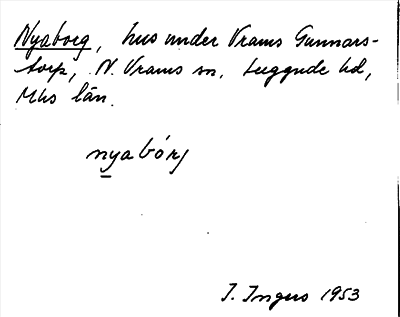 Nyaborg, hus under Vrams Gunnars-
torp, N. Vrams sn, Luggude hd,
Mhs län.
nyabórj
I. Ingers 1953